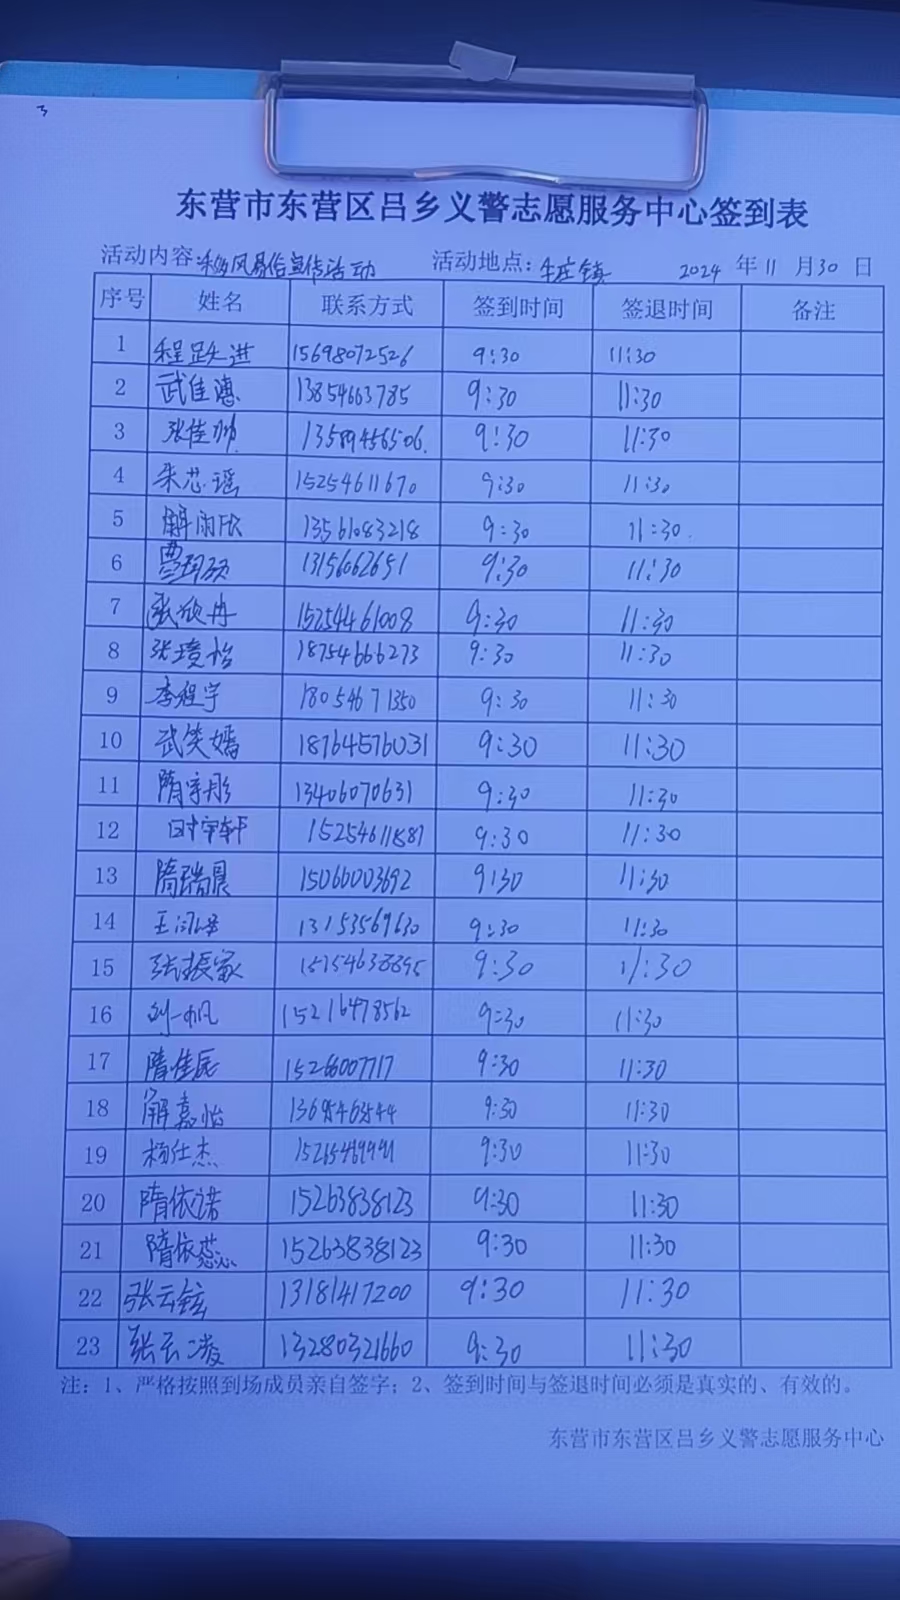 东营市东营区吕乡义警志愿服务中心签到表
活动内容:移风易俗宣传活动 活动地点:牛庄镇 2024 年 11 月 30 日
序号 姓名 联系方式 签到时间 签退时间 备注
1 程跃进 15698072526 9:30 11:30
2 武佳 13854663785 9:30 11:30
3 张佳帅 13589456506. 9:30 11:30
4 朱芯瑶 15254611670 9:30 11:30
5 解雨欣 13561083218 9:30 11:30.
6 贾 13156062651 9:30 11:30
7 张欣冉 15254461008 9:30 11:30
8 张境怡 18754666273 9:30 11:30
9 李程宇 18054671350 9:30 11:30
10 武笑嫣 18764576031 9:30 11:30
11 隋宇彤 13406070631 9:30 11:30
12 时宇轩 15254611887 9:30 11:30
13 隋瑞晨 15066003692 9:30 11:30
14 王 13153569630 9:30 11:30
15 张振家 9:30 11:30
16 刘一帆 15216478562 9:30 11:30
17 隋佳辰 15266007717 9:30 11:30
18 解嘉怡 9:30 11:30
19 杨仕杰 9:30 11:30
20 隋依诺 15263838123 9:30 11:30
21 隋依蕊 15263838123 9:30 11:30
22 张云铉 13181417200 9:30 11:30
23 张云凌 13280321660 9:30 11:30
注:1、严格按照到场成员亲自签字;2、签到时间与签退时间必须是真实的、有效的。
东营市东营区吕乡义警志愿服务中心